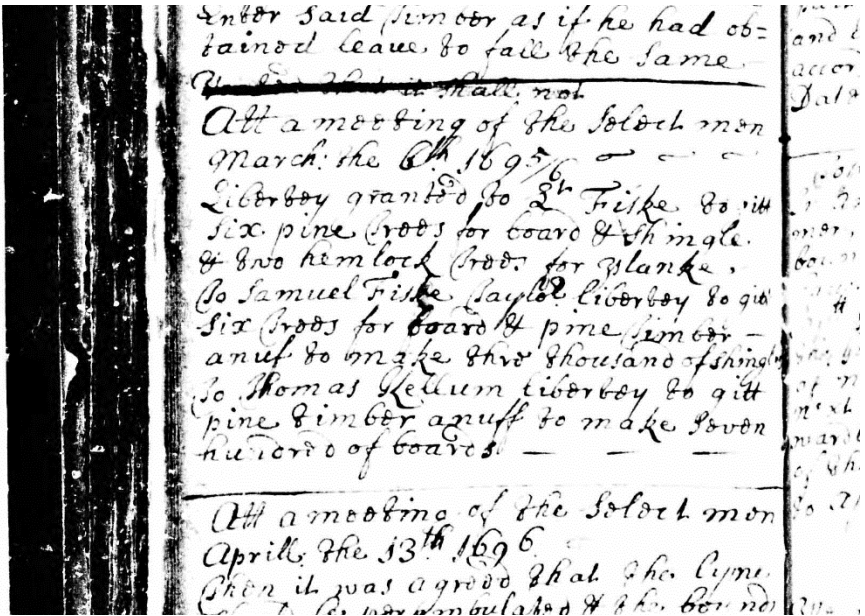 Enter said timber as if he had ob=
tained leave to fall the same
it shall not
Att a meeting of the Select men
March: the 6th 1695/6
Liberty granted to Lt Fiske to gitt
six pine trees for board & shingle
& two hemlock trees for planke.
To Samuel Fiske Taylor libertey to gitt
six trees for board & pine timber —
anuf to make thre thousand of shingle
To Thomas Kellum libertey to gitt
pine timber anuff to make seven
hundred of boards — — —
Att a meeting of the Select men
Aprill: the 13th 1696
then it was agreed that the lyne
be perambulated & the bounds
and
accor
Date